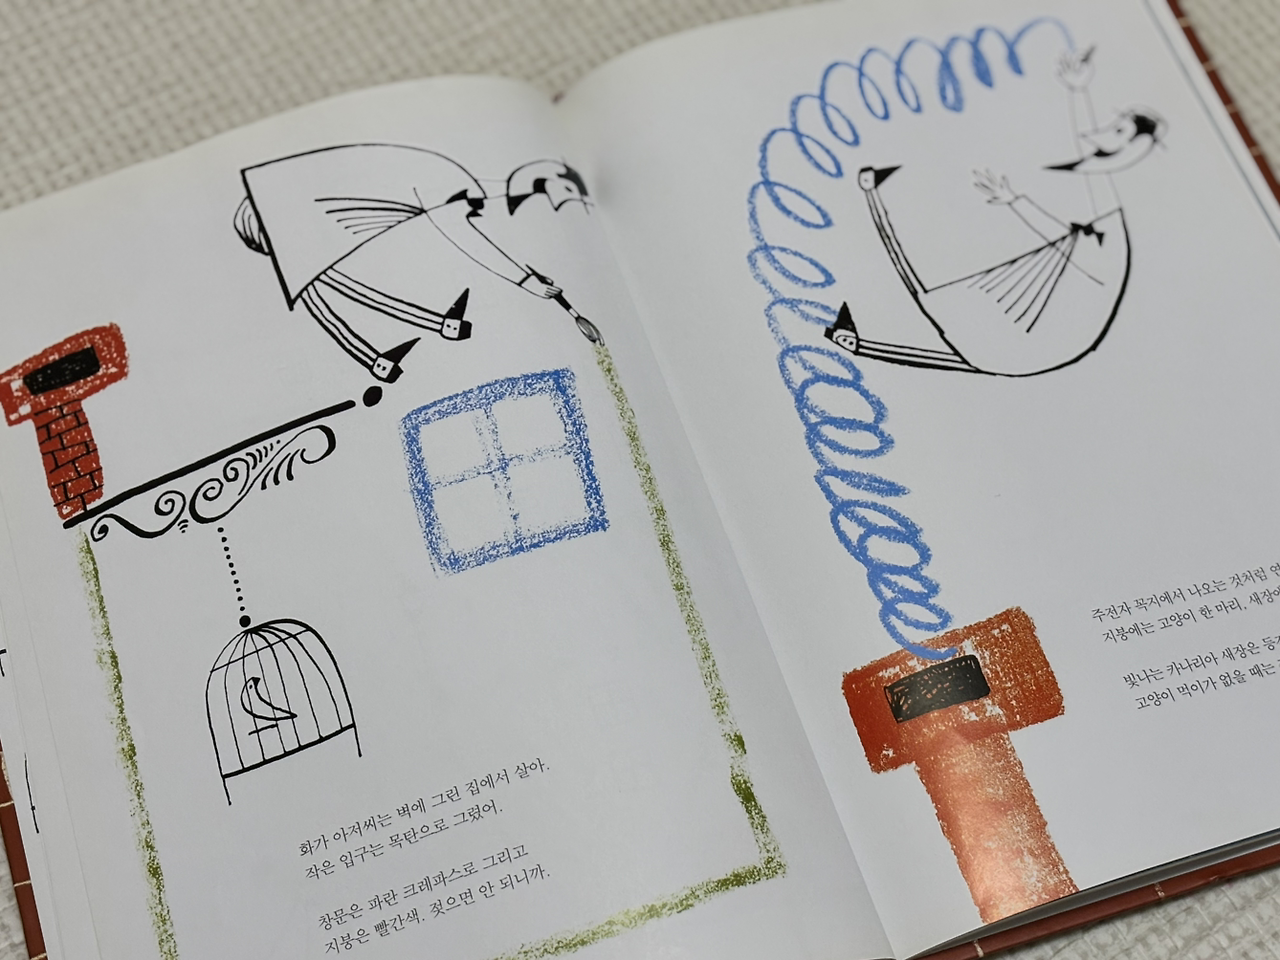 화가 아저씨는 벽에 그린 집에서 살아.
작은 입구는 목탄으로 그렸어.
창문은 파란 크레파스로 그리고
지붕은 빨간색. 젖으면 안 되니까.
주전자 꼭지에서 나오는 것처럼
지붕에는 고양이 한 마리, 새장에
빛나는 카나리아 새장은
고양이 먹이가 없을 때는